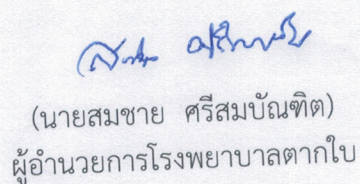 (นายสมชาย ศรีสมบัณฑิต)
ผู้อำนวยการโรงพยาบาลตากใบ